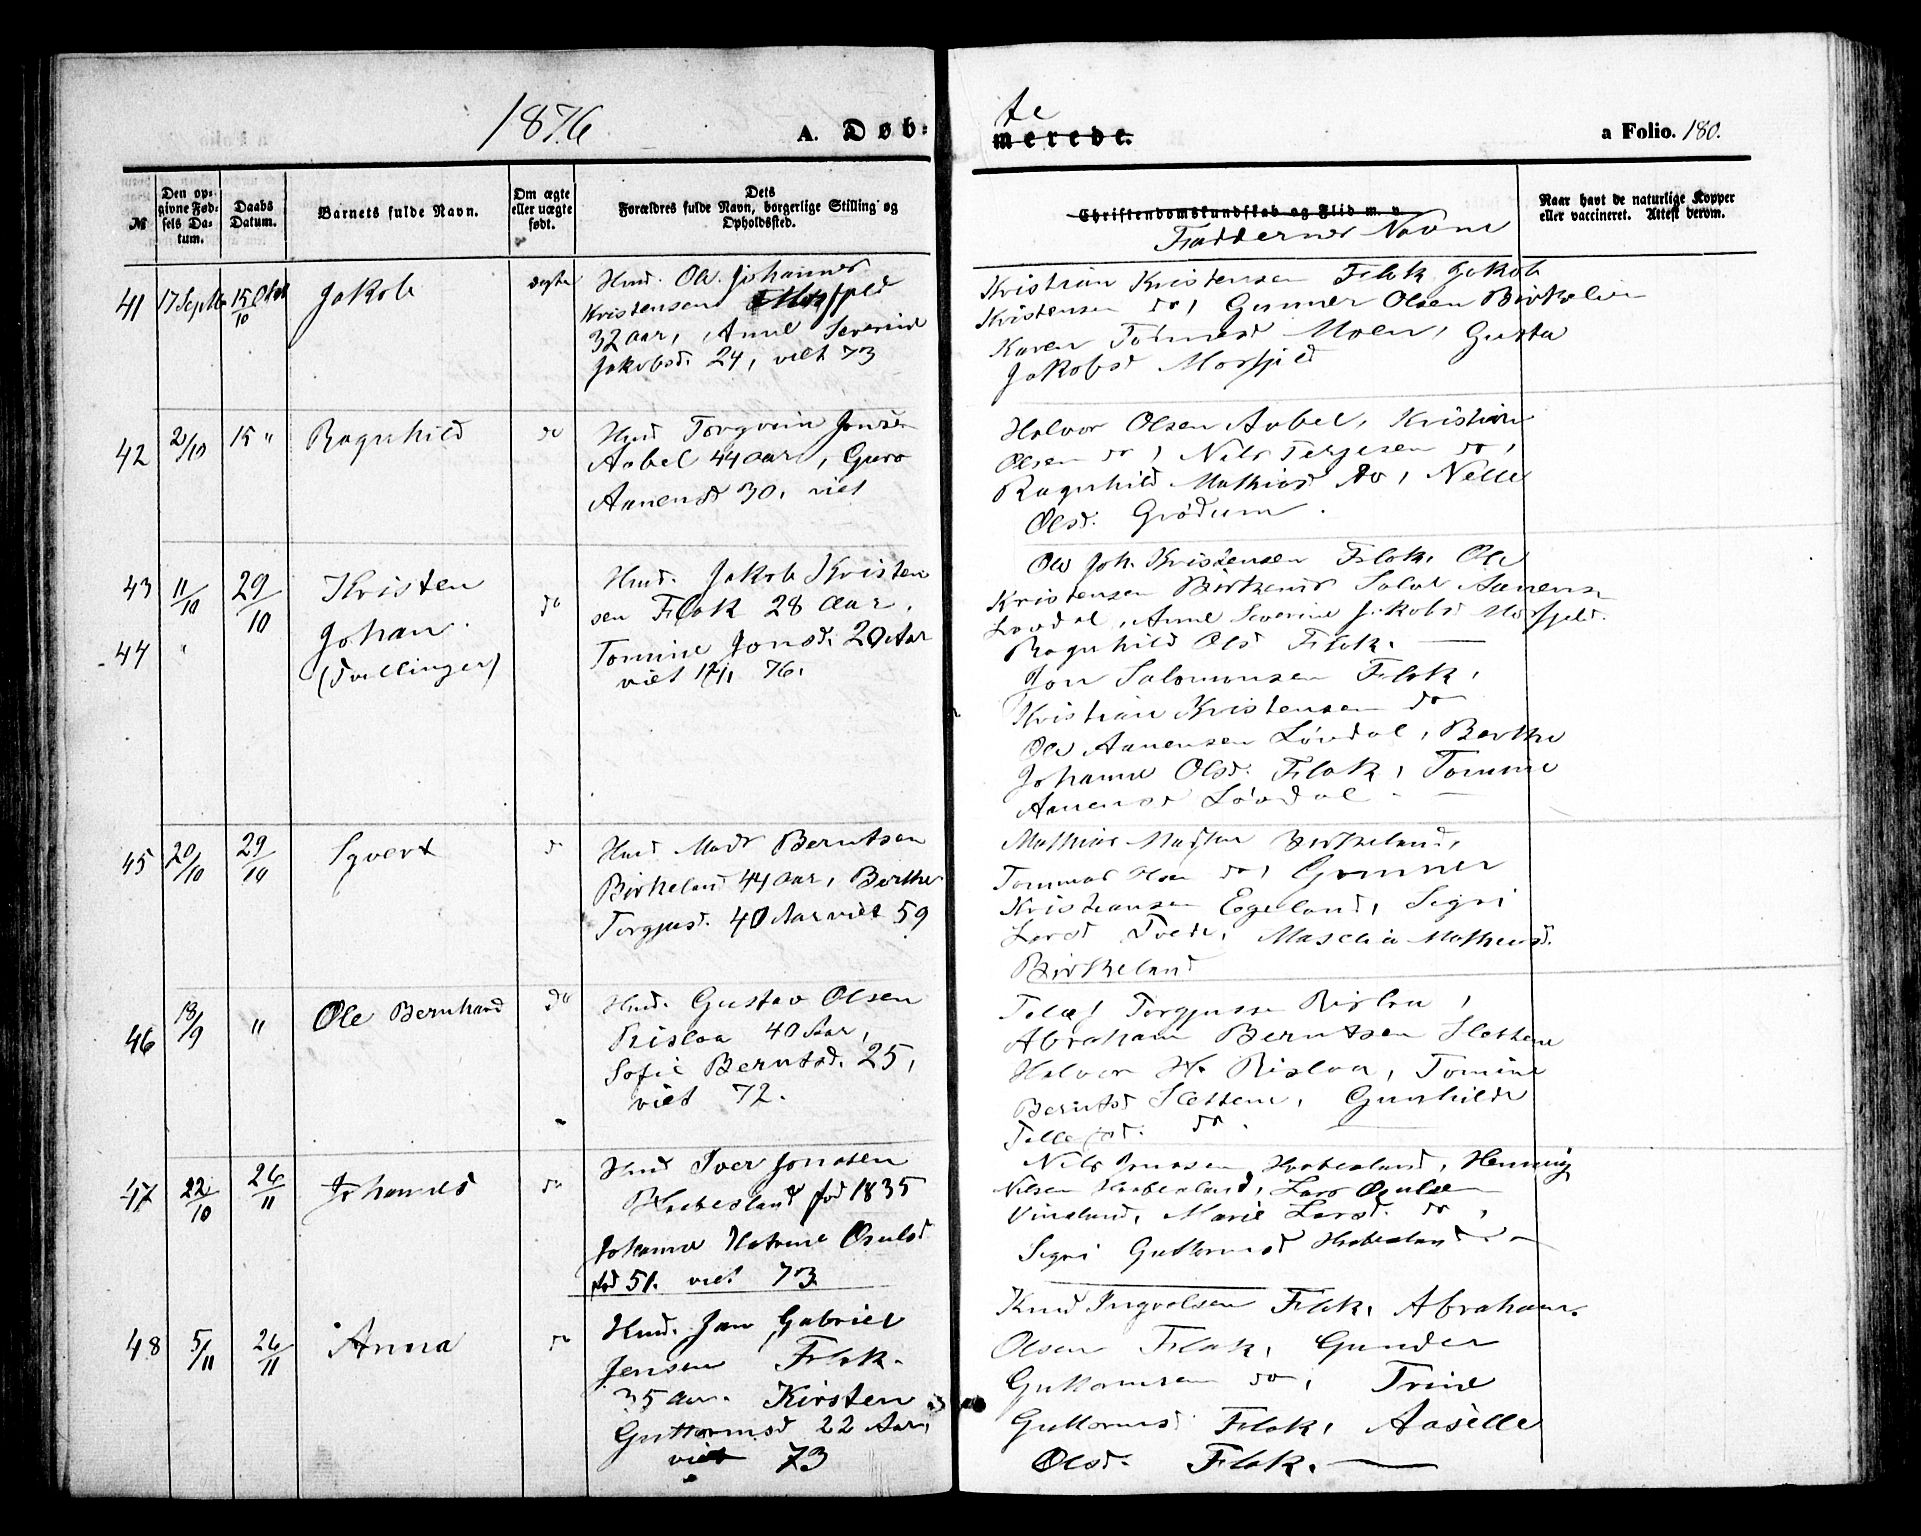 1876
A. Døb: te
merede.
a Folio. 180.
№
Den op-
givne Fød-
sels Da-
tum.
Daabs
Datum.
Barnets fulde Navn.
Om ægte
eller uægte
født.
Dets
Forældres fulde Navn, borgerlige Stilling og
Opholdssted.
Christendomskundskab og Flid m. v.
Faddernes Navne
Naar havt de naturlige Kopper
eller vaccineret. Attest derom.
41 17 Septbr 15 Oktob 10 Jakob ægte
Hmd. Ole Johannes
Kristensen Mosfjeld
32 Aar, Anne Severine
Jakobsd. 24, viet 73
Kristian Kristensen Flak Jakob
Kristensen do, Gunner Olsen Birkeland
Karen Tomines Moen, Gusta
Jakobsd Mosfjeld
42 2/10 15 " Ragnhild do
Hmd Torgrim Jonsen
Aabel 44 Aar, Guro
Aanensd 30, viet
Halvor Olsen Aabel, Kristian
Olsen do, Nils Tergesen do,
Ragnhild Mathiasd do, Nelle
Olsd. Grødum.
43 11/10 29/10 Kristen do
44 " Johan.
(Tvillinger)
Hmd. Jakob Kristen
sen Flak 28 Aar,
Tomine Jonsd. 20 Aar
viet 76.
Ole Joh. Kristensen Flak, Ole
Kristensen Birkenes Salve Aanensen
Løvdal, Anne Severine Jakobsd Mosfjeld.
Ragnhild Olsd Flak.
Jon Salomonsen Flak,
Kristian Kristensen do
Ole Aanensen Løvdal, Berthe
Johanne Olsd. Flak, Tomine
Aanensd Løvdal
45 20/10 29/10 Syvert do
Hmd Mads Berntsen
Birkeland 44 Aar, Berthe
Torgjusd. 40 Aar viet 59
Mathias Madsen Birkeland,
Tommas Olsen do, Gunner
Kristiansen Egeland, Segri
Larsd Tvede, Maselia Mathiasd.
Birkeland
46 18/9 " Ole Bernhard do
Hmd. Gustav Olsen
Risløa 40 Aar,
Sofie Berntsd. 25,
viet 72.
Torgjussen Risløa,
Abraham Berntsen Slettene
Halvor H. Risløa, Tomine
Berntsd Slettene, Gunhilde
Tellefsd. do.
47 22/10 26/11 Johannes do
Hmd Iver Jonasen
Haabesland fød 1835
Johanne Katrine Osulsd
fød 51. viet 73
Nils Jonassen Haabesland, Henning
Nilsen Haabesland, Lars Osulsen
Vinsland, Marie Larsd. do,
Segri Guttormsd Haabesland
48 5/11 26/11 Anna do
Hmd. Jan Gabriel
Jensen Flak.
35 Aar. Kirsten
Guttormsd 22 Aar,
viet 73
Knud Ingvalsen Flak, Abraham
Olsen Flak, Gunder
Guttormsen do, Trine
Guttormsd Flak, Aaselle
Olsd. Flak.